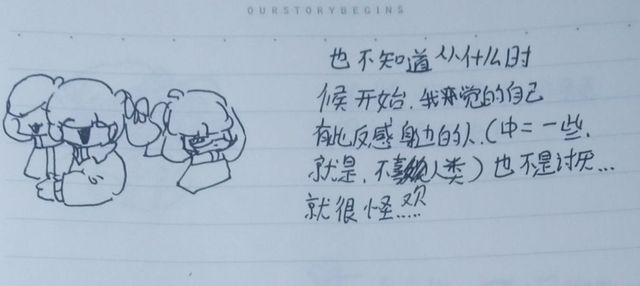 OURSTORYBEGINS
也不知道从什么时
候开始,我就觉的自己
有些反感身边的人,(中二一些,
就是,不喜欢人类)也不是讨厌...
就很怪.....